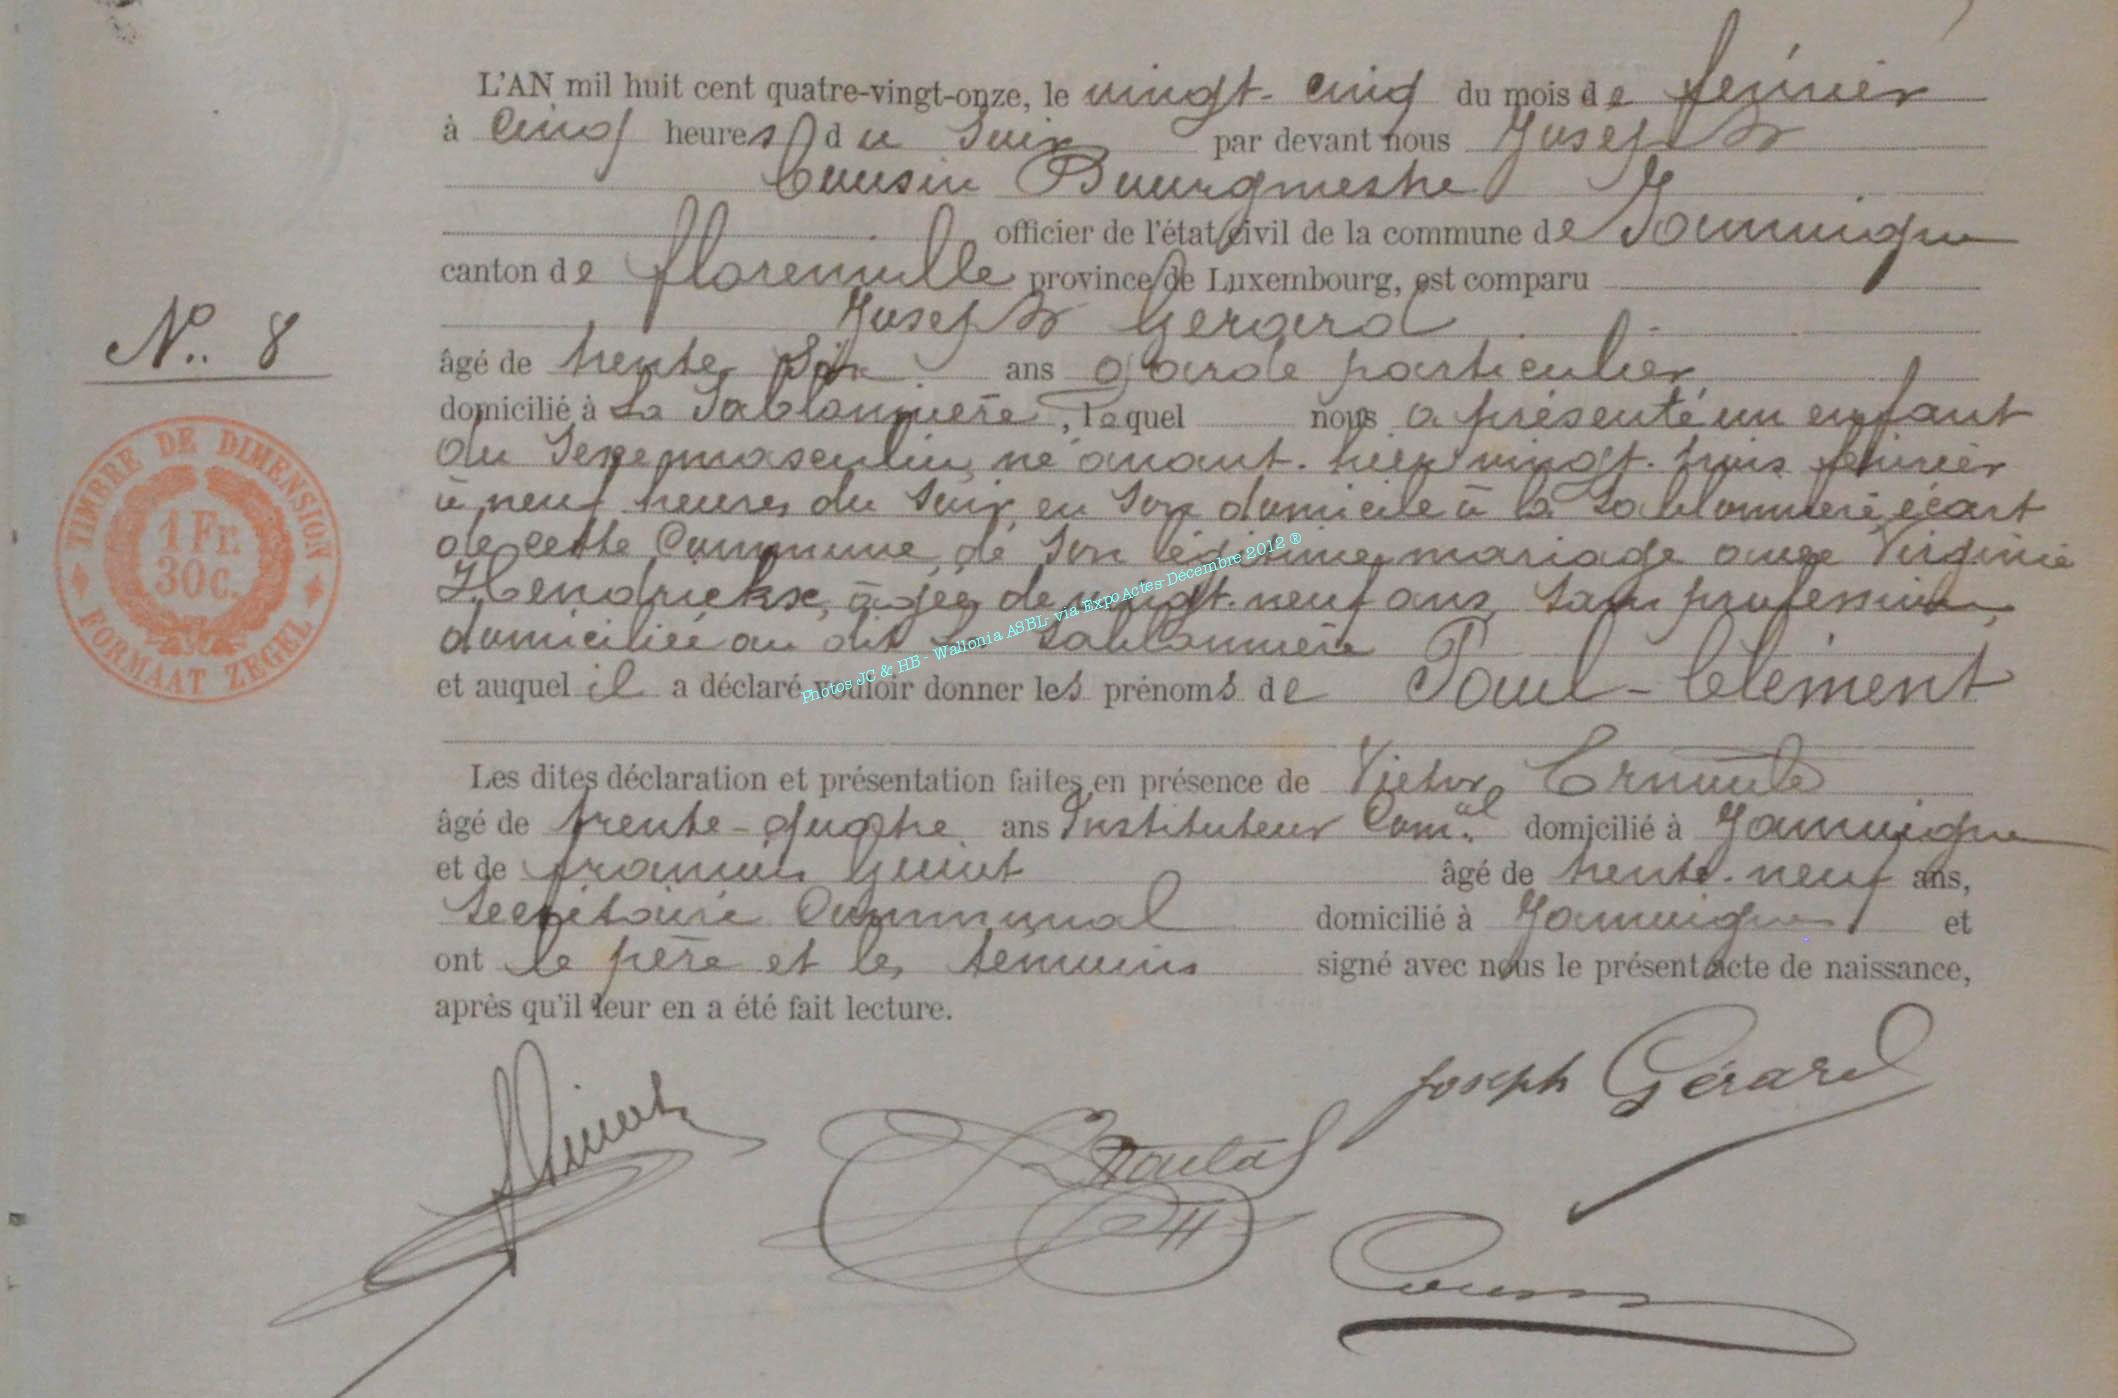 L'AN mil huit cent quatre-vingt-onze, le vingt-cinq du mois de février
à cinq heures du soir par devant nous Joseph
Cousin Bourgmestre
officier de l'état civil de la commune de Jamoigne
canton de Florenville province de Luxembourg, est comparu
Joseph Gerard
N° 8
âgé de trente six ans garde particulier
domicilié à La Sablonnière, lequel nous a présenté un enfant
du sexe masculin, né avant-hier vingt-trois février
à neuf heures du soir, en son domicile à la Sablonnière écart
de cette Commune, de son légitime mariage avec Virginie
Hendrickx, âgée de vingt-neuf ans, sans profession,
domiciliée au dit La Sablonnière
et auquel il a déclaré vouloir donner les prénoms de Paul-Clément
Les dites déclaration et présentation faites en présence de Victor
âgé de trente-quatre ans Instituteur Com.al domicilié à Jamoigne
et de François Guiot âgé de trente-neuf ans,
Secrétaire Communal domicilié à Jamoigne et
ont le père et les témoins signé avec nous le présent acte de naissance,
après qu'il leur en a été fait lecture.
TIMBRE DE DIMENSION
1 Fr.
30c.
FORMAAT ZEGEL
Photos JC & HB - Wallonia ASBL- via ExpoActes-Décembre 2012 ®
Joseph Gérard
Cousin